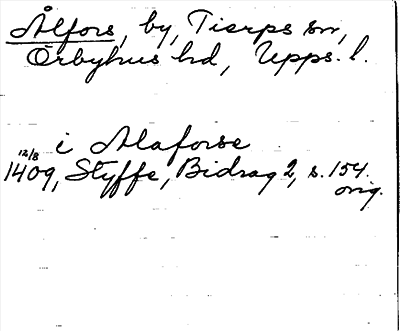 Ålfors, by, Tierps sn,
Örbyhus hd, Upps. l.
i Alaforse
12/8 1409, Styffe, Bidrag 2, s. 154.
orig.